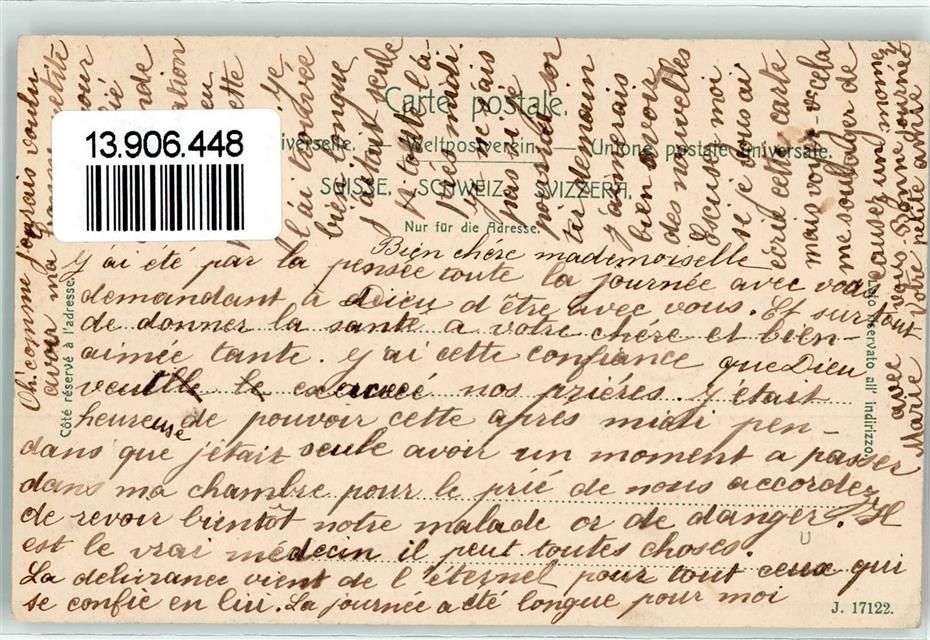 13.906.448
Carte postale.
iverselle. — Weltpostverein. — Unione postale universale.
SUISSE. SCHWEIZ. SVIZZERA.
Nur für die Adresse.
Côté réservé à l'adresse.
Lato riservato all' indirizzo.
Bien chère mademoiselle
J'ai été par la pensée toute la journée avec vous
demandant à Dieu d'être avec vous. Et surtout
de donner la santé a votre chère et bien-
aimée tante. J'ai cette confiance que Dieu
veuille nos prières. J'était
heureuse de pouvoir cette après midi pen-
dans que j'étais seule avoir un moment a passer
dans ma chambre pour le prié de nous accordez
de revoir bientôt notre malade or de danger. Il
est le vrai médecin il peut toutes choses.
La délivrance vient de l'éternel pour tout ceux qui
se confie en lui. La journée a été longue pour moi
Oh! comme j'aurais voulu
avoir ma
petite
pour
tation
je
bien longue
j'étais seule
midi.
pas si je
possible sor
tir demain
j'aimerais
bien avoir
des nouvelles
Escuse moi
si je vous ai
écrie cette carte
mais voyez-vs cela
me soulager de
causez un moment
avec vous. Bonne journée
Marie votre petite amie
J. 17122.